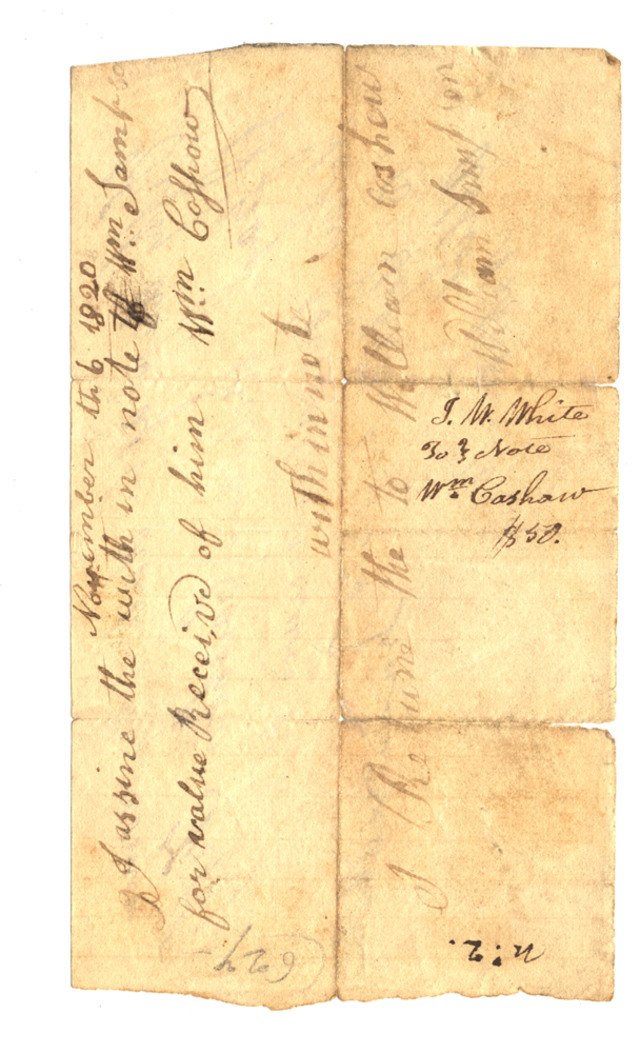 November th 6 1820
I assine the with in note to Wm Samp
for value Receivd of him Wm Coshow
with in note
I Re the to William Coshow
William
J. W. White
To } Note
Wm. Cashaw
$50.
n: 2.